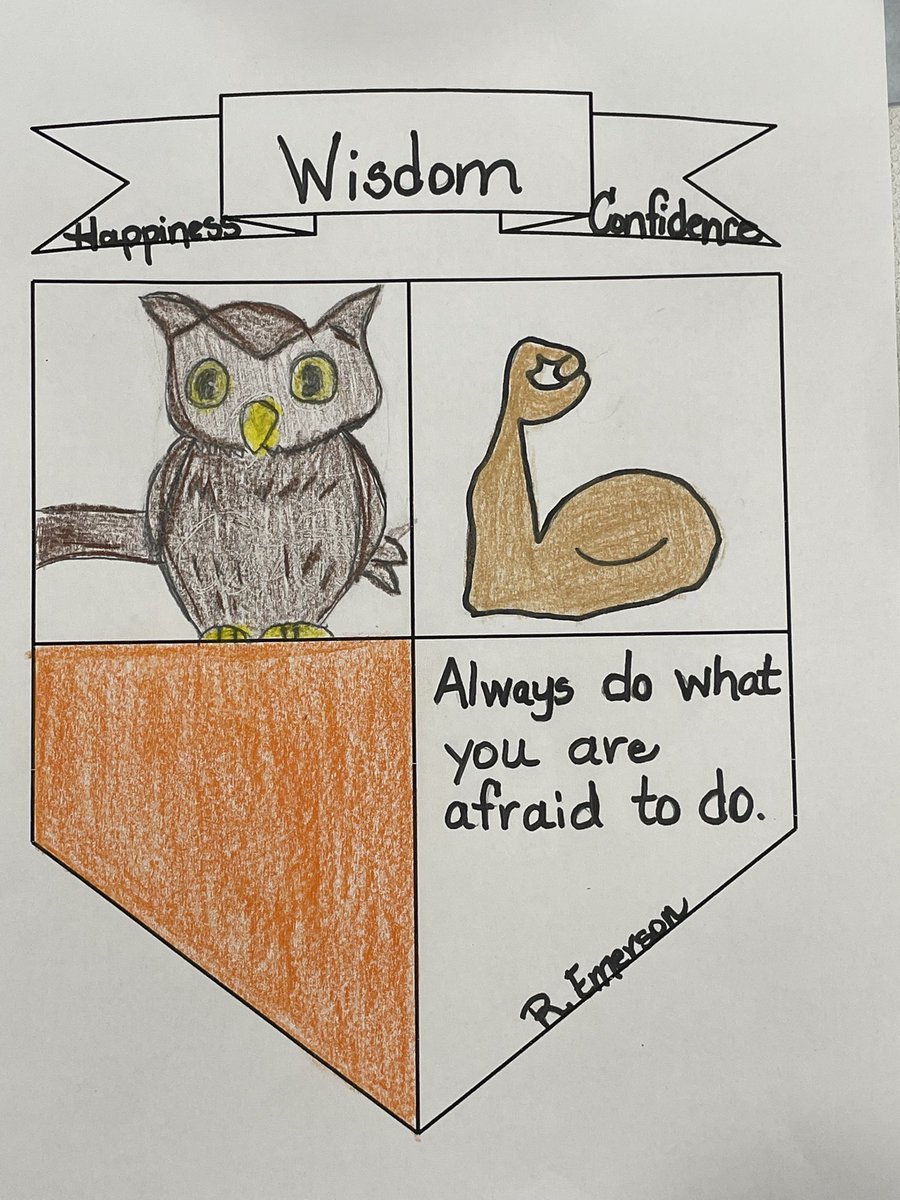 Wisdom
Happiness
Confidence
Always do what
you are
afraid to do.
R. Emerson